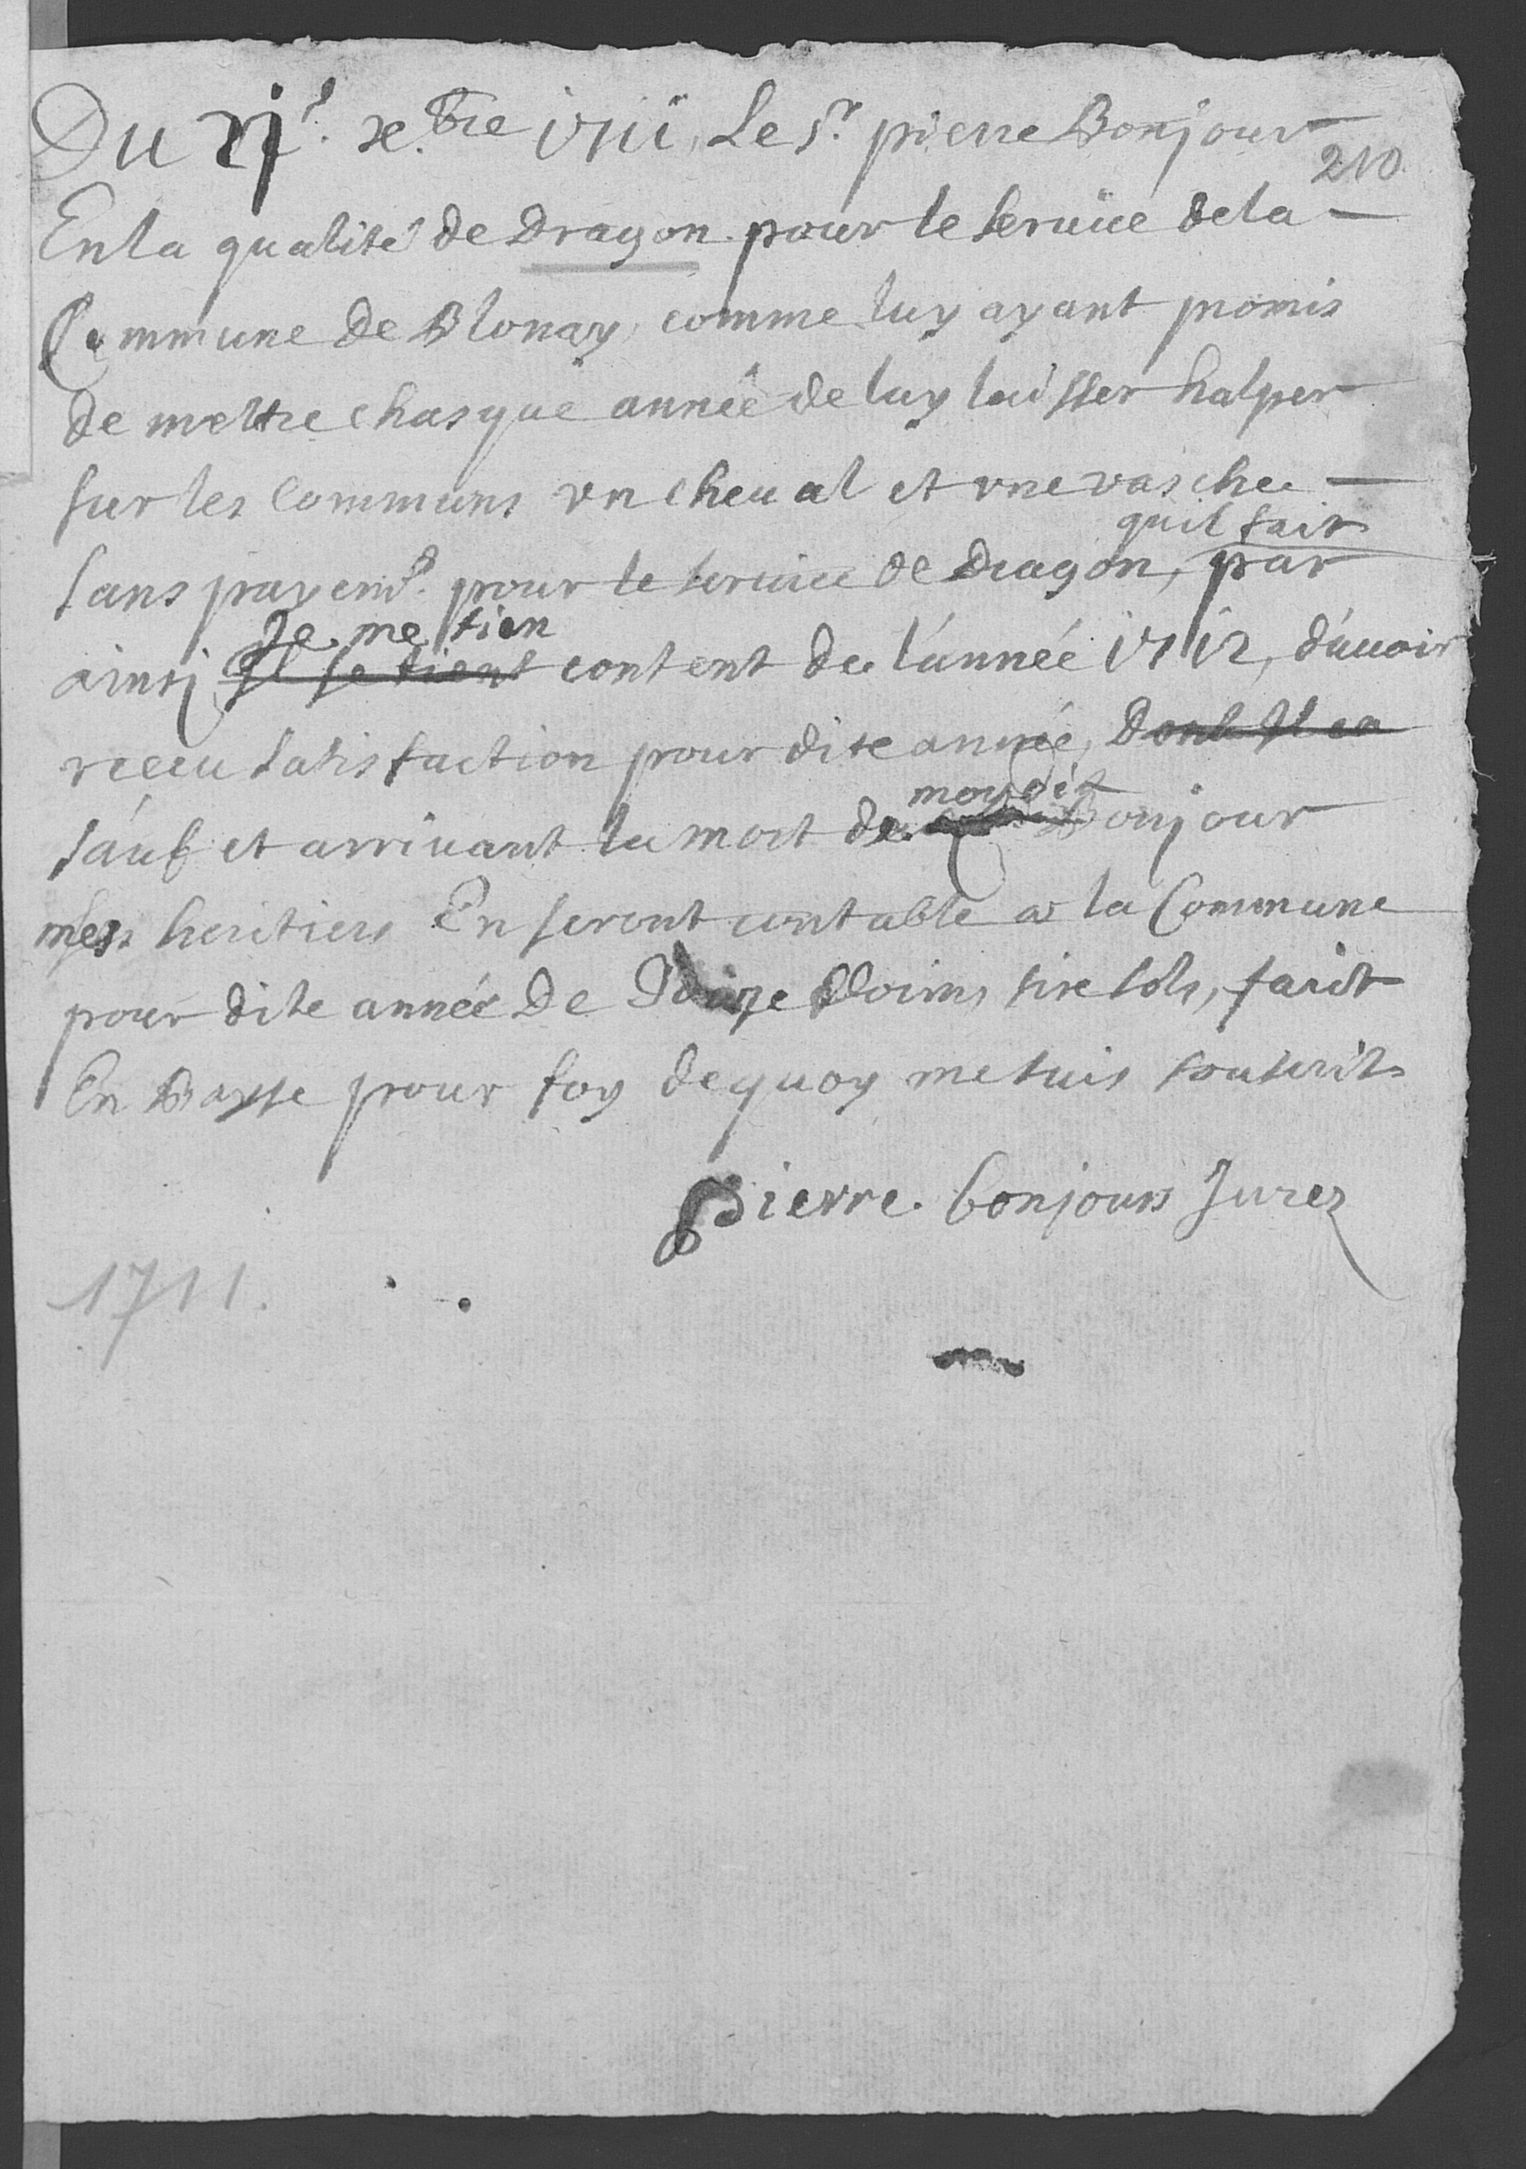 Du xj.e xe.bre 1711, Le Sr. pierre Bonjour
210.
En la qualité de Dragon pour le seruice de la
Commune de Blonay, comme luy ayant promis
de mettre chasque année de luy laisser halper
sur les communs vn cheual et vne vasche
quil fait
sans payemt. pour le seruice de Dragon, par
Je me tien
ainsj Il se tient content de l'année 1712, d'auoir
receu satisfaction pour dite année, Dont Il en
moy dit
sauf et arriuant la mort de Bonjour
mes heritiers En seront contable a la Commune
pour dite année De fsols, faict
En Baysse pour foy dequoy me suis souscrit
Pierre. bonjours Jurez
1711.